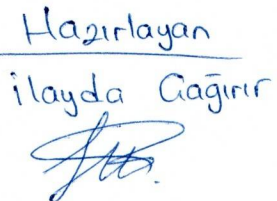 Hazırlayan
ilayda Çağırır